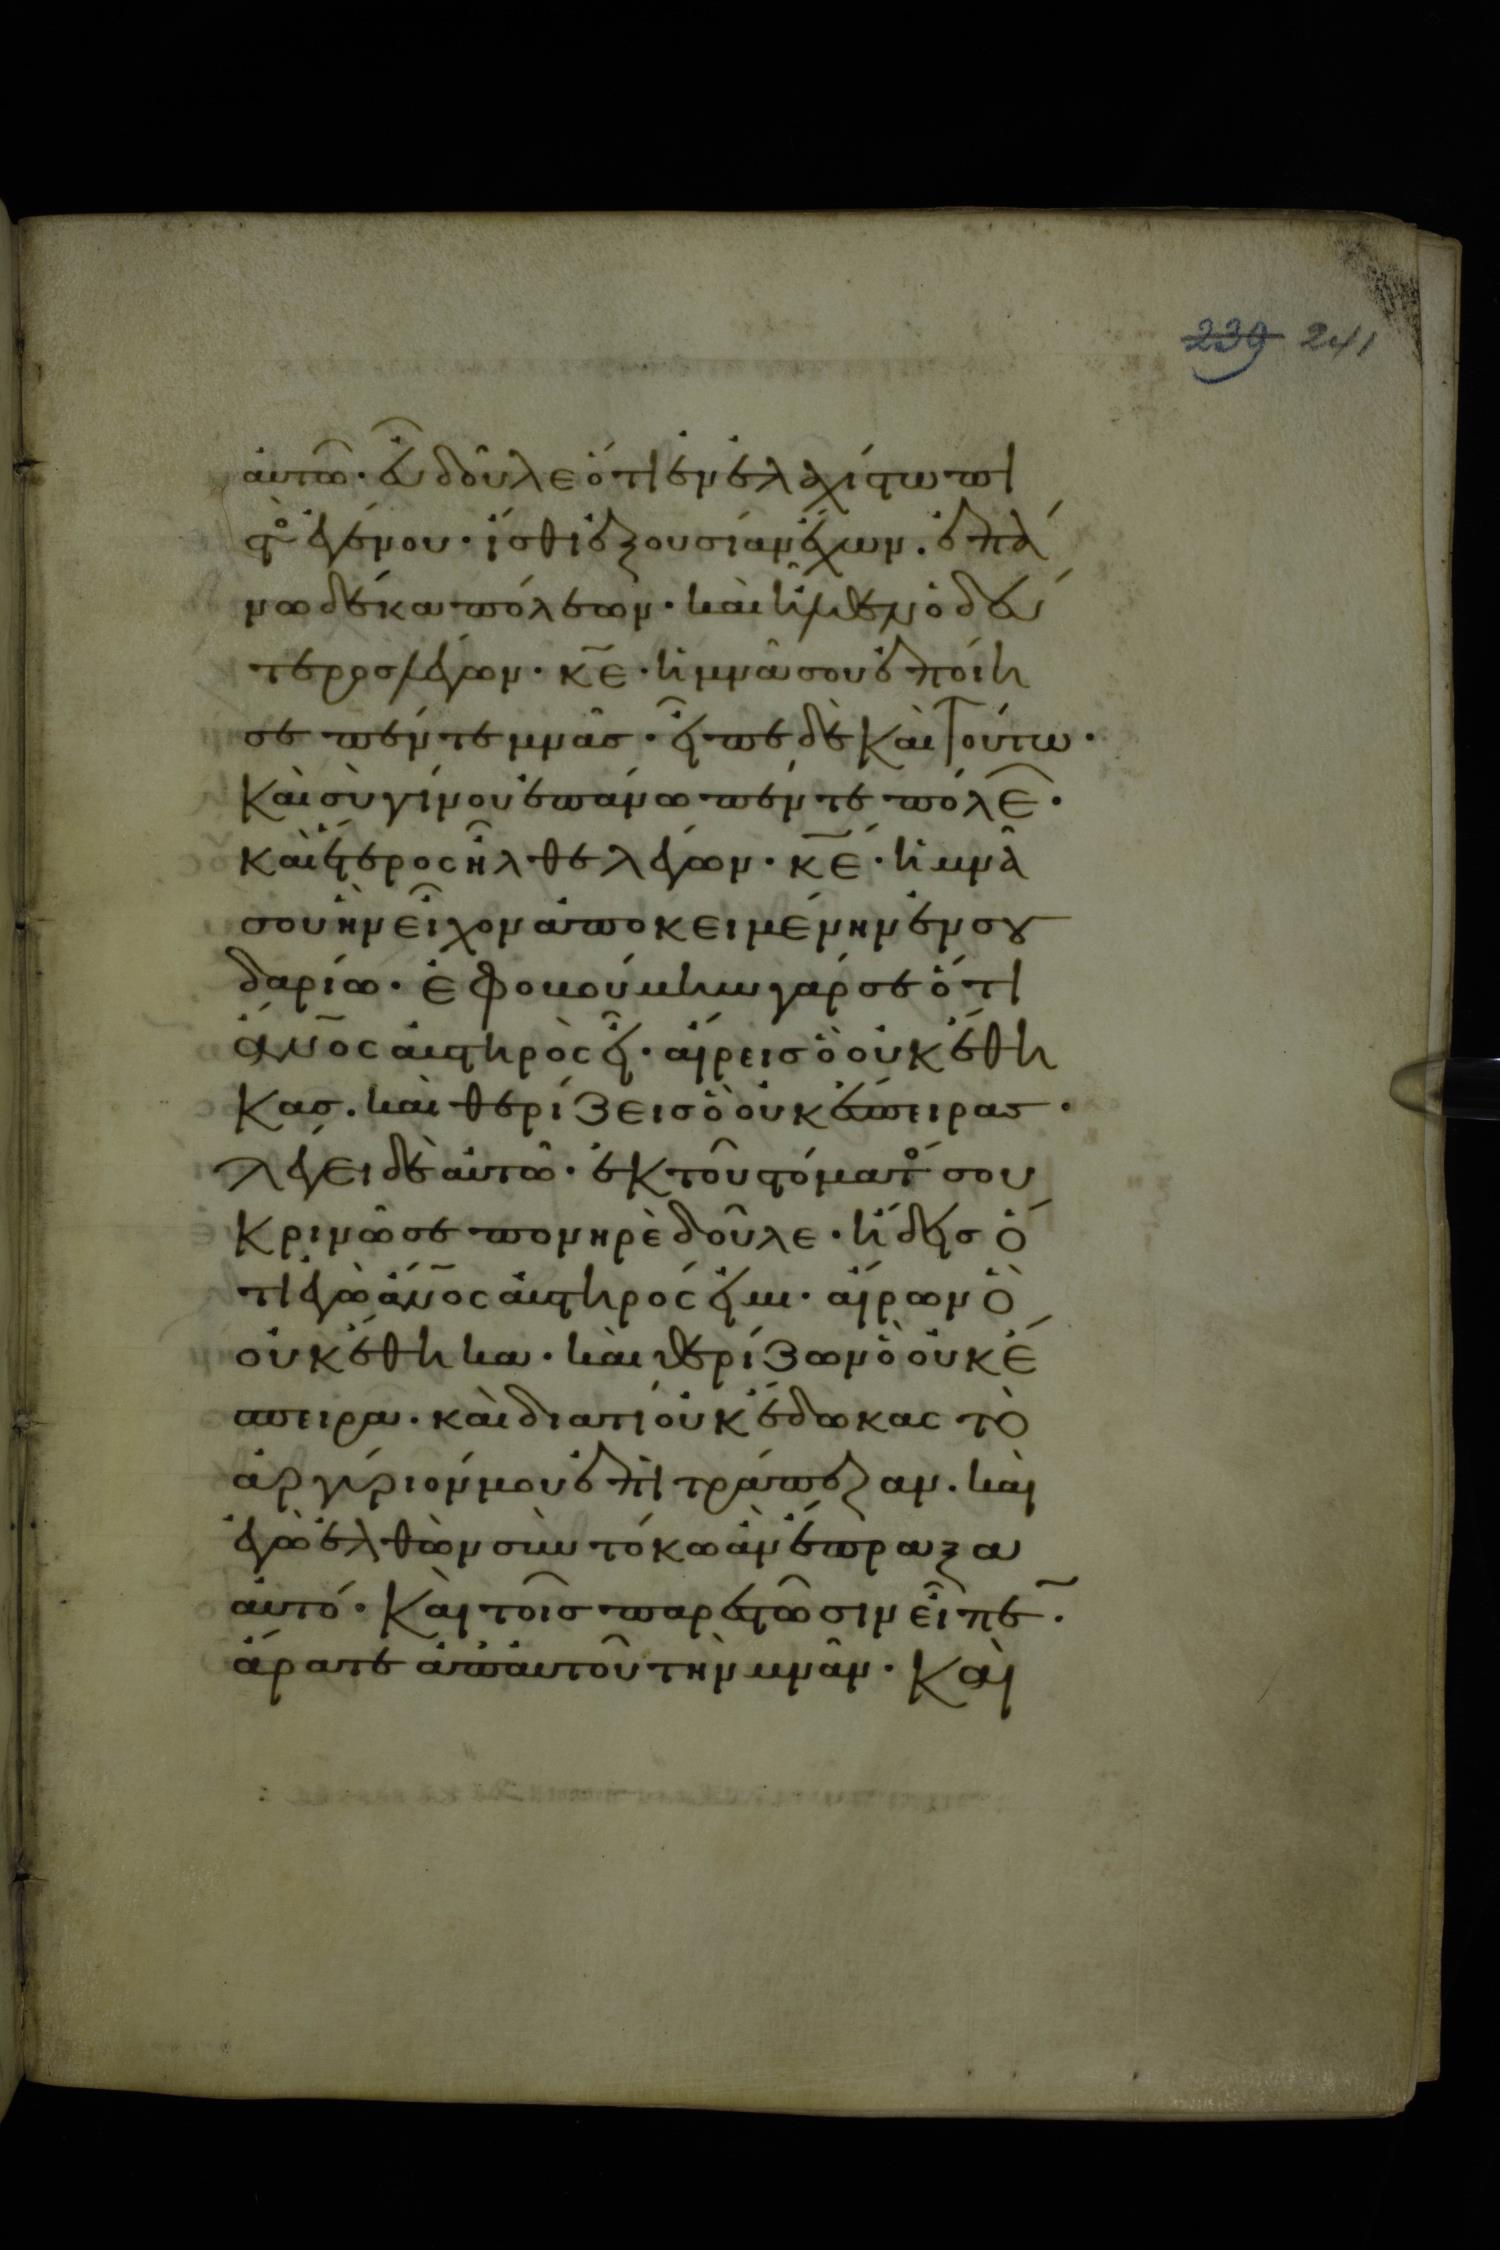 239 241
αὐτῶ· εὖ δοῦλε ὅτι ἐν ἐλαχίστω πι
στὸς ἐγένου· ἴσθι ἐξουσίαν ἔχων· ἐπά
νω δέκα πόλεων· καὶ ἦλθεν ὁ δεύ
τερος λέγων· κ̅ε̅· ἡ μνᾶ σου ἐποίη
σε πέντε μνᾶς· εἶπε δὲ καὶ τούτω·
καὶ σὺ γίνου ἐπάνω πέντε πόλε͡·
καὶ ἕτερος ἦλθε λέγων· κ̅ε̅· ἡ μνᾶ
σου ἣν εἶχον ἀποκειμένην ἐν σου
δαρίω· ἐφοβούμην γάρ σε ὅτι
ἄν̅ος αὐστηρὸς εἶ· αἴρεις ὃ οὐκ ἔθη
κας· καὶ θερίζεις ὃ οὐκ ἔσπειρας·
λέγει δὲ αὐτῶ· ἐκ τοῦ στόματός σου
κρινῶ σε πονηρὲ δοῦλε· ἤδεις ὅ
τι ἐγὼ ἄν̅ος αὐστηρός εἰμι· αἴρων ὃ
οὐκ ἔθηκα· καὶ θερίζων ὃ οὐκ ἔ
σπειρα· καὶ διατί οὐκ ἔδωκας τὸ
ἀργύριόν μου ἐπὶ τράπεζαν· καὶ
ἐγὼ ἐλθὼν σὺν τόκω ἂν ἔπραξα
αὐτό· καὶ τοῖς παρεστῶσιν εἶπε̅·
ἄρατε ἀπ' αὐτοῦ τὴν μνᾶν· καὶ